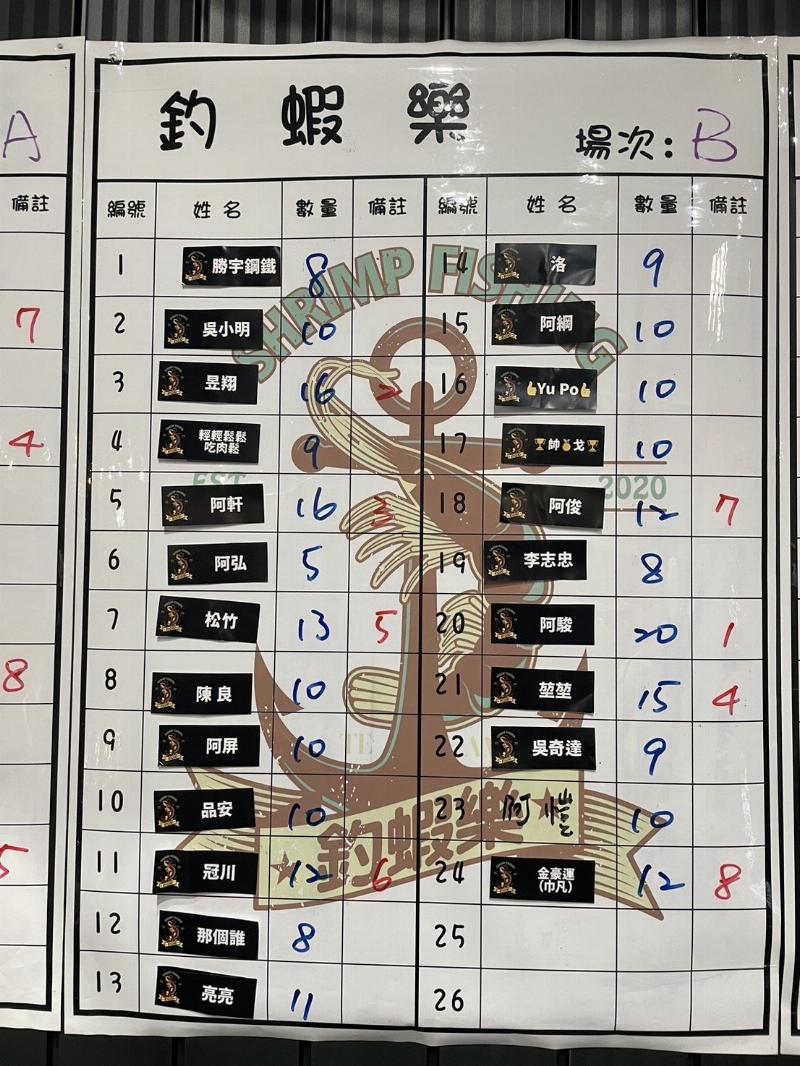 釣蝦樂
場次: B
A
備註
7
4
8
5
編號 姓名 數量 備註 編號 姓名 數量 備註
1 勝宇鋼鐵 8 14 洛 9
2 吳小明 10 15 阿綱 10
3 昱翔 16 2 16 👍Yu Po👍 10
4 輕輕鬆鬆 9 17 🏆帥🏅戈🏆 10
吃肉鬆
5 阿軒 16 3 18 阿俊 12 7
6 阿弘 5 19 李志忠 8
7 松竹 13 5 20 阿駿 20 1
8 陳良 10 21 堃堃 15 4
9 阿屏 10 22 吳奇達 9
10 品安 10 23 阿愷 10
11 冠川 12 6 24 金豪運 12 8
(巾凡)
12 那個誰 8 25
13 亮亮 11 26
SHRIMP FISHING
EST 2020
釣蝦樂